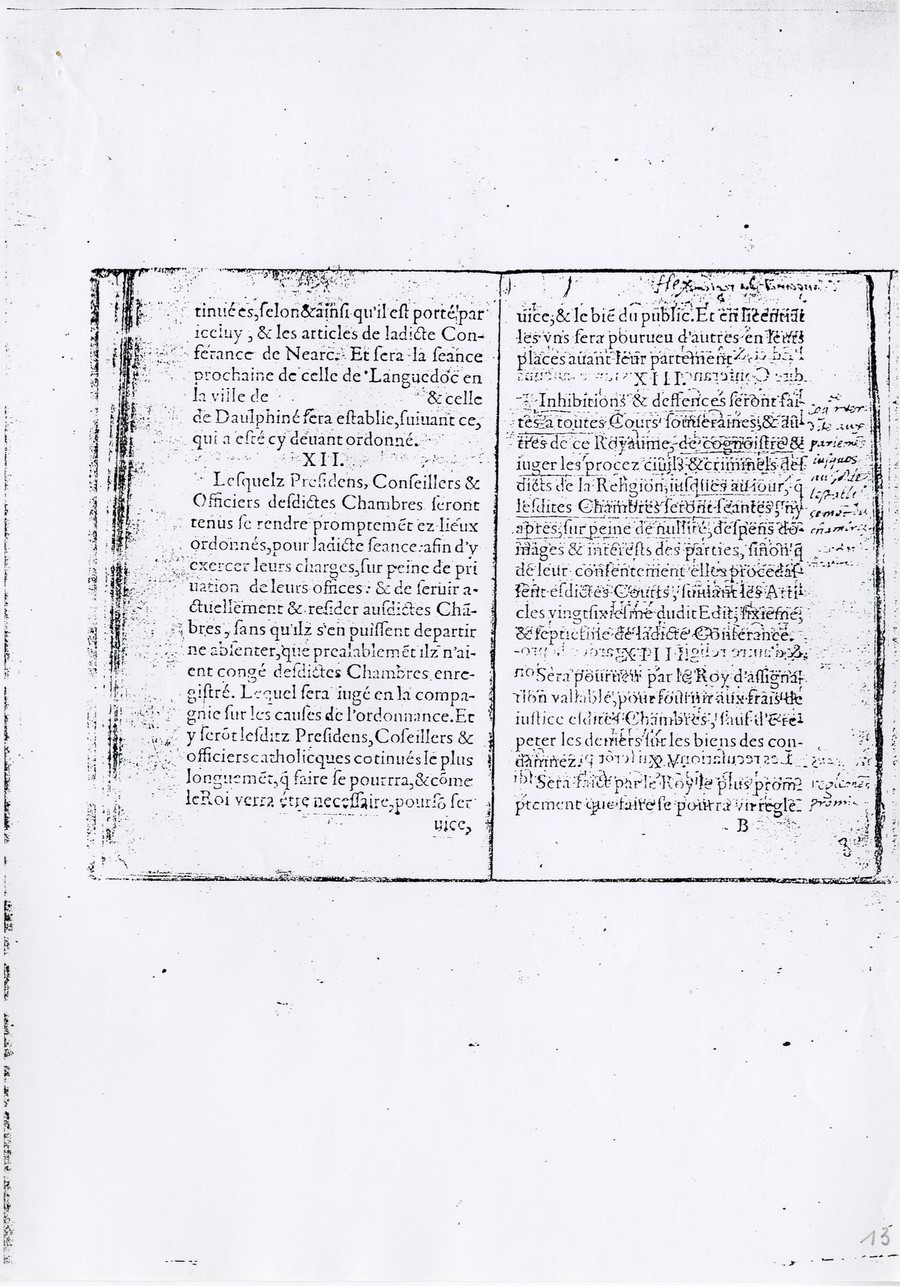 tinuées, selon & ainsi qu'il est porté par
iceluy, & les articles de ladicte Con-
ferance de Nearc. Et sera la seance
prochaine de celle de Languedoc en
la ville de & celle
de Daulphiné sera establie, suiuant ce,
qui a esté cy deuant ordonné.
XII.
Lesquelz Presidens, Conseillers &
Officiers desdictes Chambres seront
tenus se rendre promptemēt ez lieux
ordonnés, pour ladicte seance: afin d'y
exercer leurs charges, sur peine de pri
uation de leurs offices: & de seruir a-
ctuellement & resider ausdictes Chā-
bres, sans qu'ilz s'en puissent departir
ne absenter, que prealablemēt ilz n'ai-
ent congé desdictes Chambres enre-
gistré. Lequel sera iugé en la compa-
gnie sur les causes de l'ordonnance. Et
y serōt lesditz Presidens, Cōseillers &
officiers catholicques cōtinués le plus
longuemēt, q̄ faire se pourrra, & cōme
le Roi verra étre necessaire, pour sō ser
uice,
uice, & le biē du public. Et en licentiāt
les vns sera pourueu d'autres en leurs
places auant leur partement
XIII.
Inhibitions & deffences seront fai-
tes a toutes Cours souueraines, & au-
tres de ce Royaume, de cognoistre &
iuger les procez ciuils & criminels des
dicts de la Religion, iusques au iour, q̄
lesdites Chambres seront seantes, ny
apres, sur peine de nullité, despens do-
mages & interests des parties, sinon q̄
de leur consentement elles procedas-
sent esdictes Courts, suiuant les Arti-
cles vingtsixiesme dudit Edit, sixieme,
& septiesme de ladicte Conferance.
XIIII.
Sera pourueu par le Roy d'assigna-
tion vallable, pour fournir aux frais de
iustice esdites Chambres, sauf d'ē re-
peter les deniers sur les biens des con-
damnez.
XV.
Sera faict par le Roy le plus prom-
ptement que faire se pourra vn regle-
B
parlemens
iusques
reglement
3
13